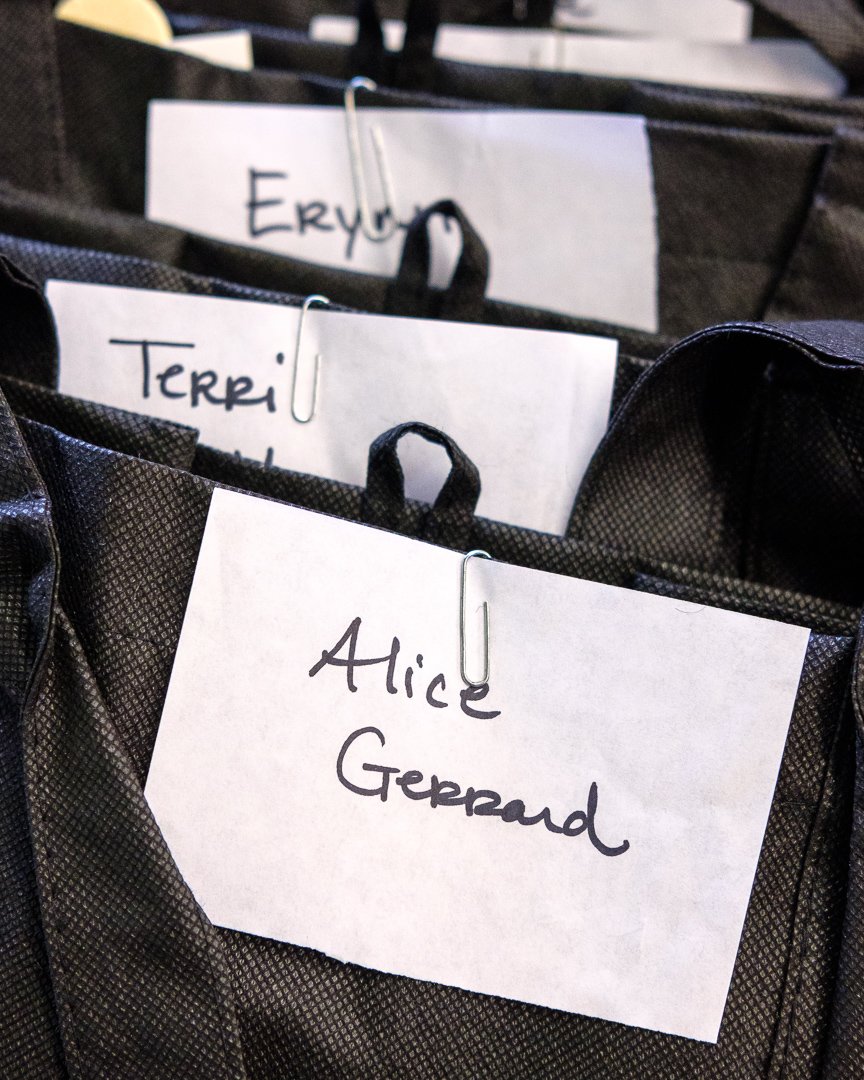 Eryn
Terri
Alice
Gerrard